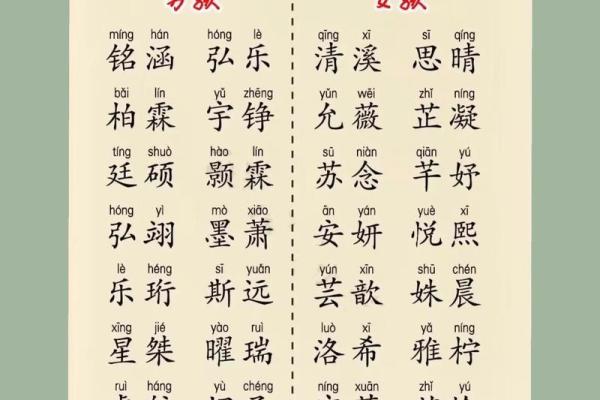 míng hán hóng lè qīng xī sī qíng
铭涵 弘乐 清溪 思晴
bǎi lín yǔ zhēng yǔn wēi zhǐ níng
柏霖 宇铮 允薇 芷凝
tíng shuò hào lín sū niàn qiān yú
廷硕 颢霖 苏念 芊妤
hóng yì mò xiāo ān yán yuè xī
弘翊 墨萧 安妍 悦熙
lè héng sī yuǎn yún xīn shū chén
乐珩 斯远 芸歆 姝晨
xīng jié yào ruì luò xī yǎ níng
星桀 曜瑞 洛希 雅柠
ruì háng yù chéng níng xuān zhǐ yú